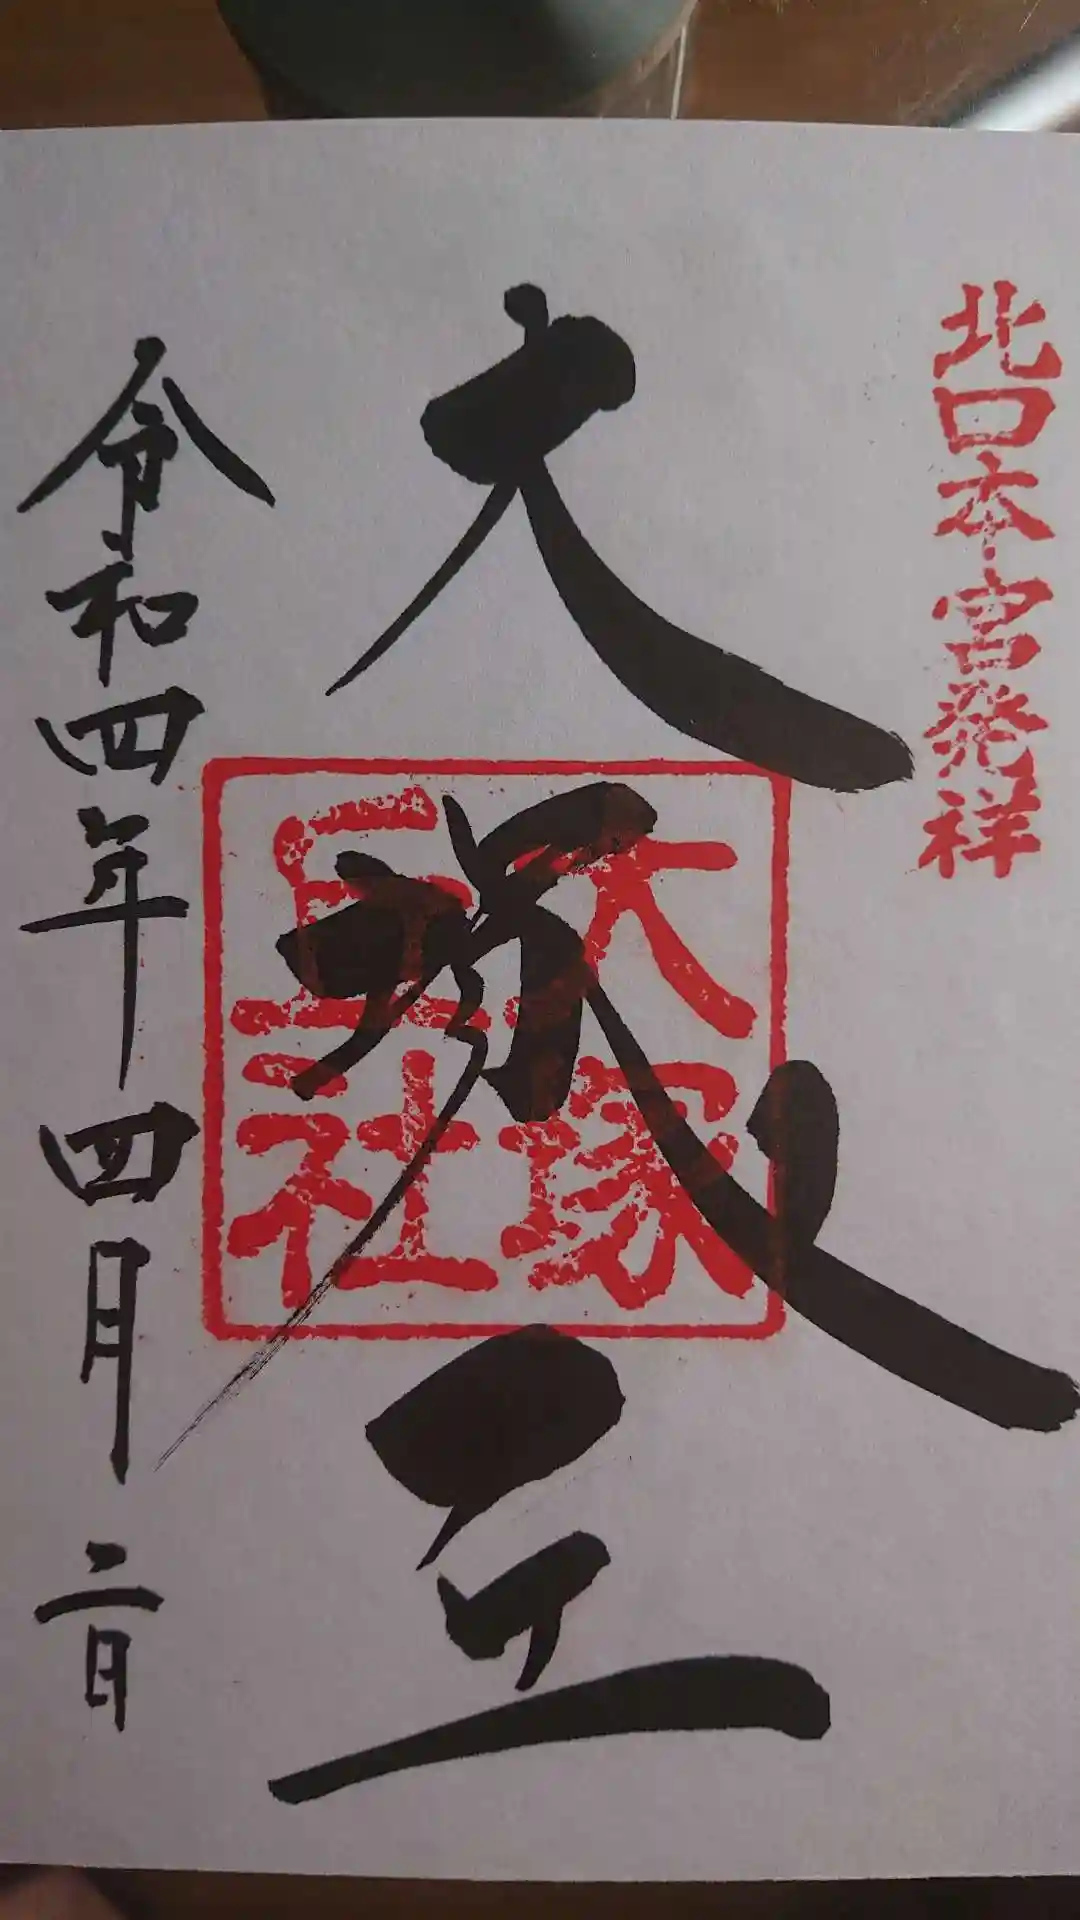 北口本宮発祥
大塚丘
大塚
丘社
令和四年四月二日